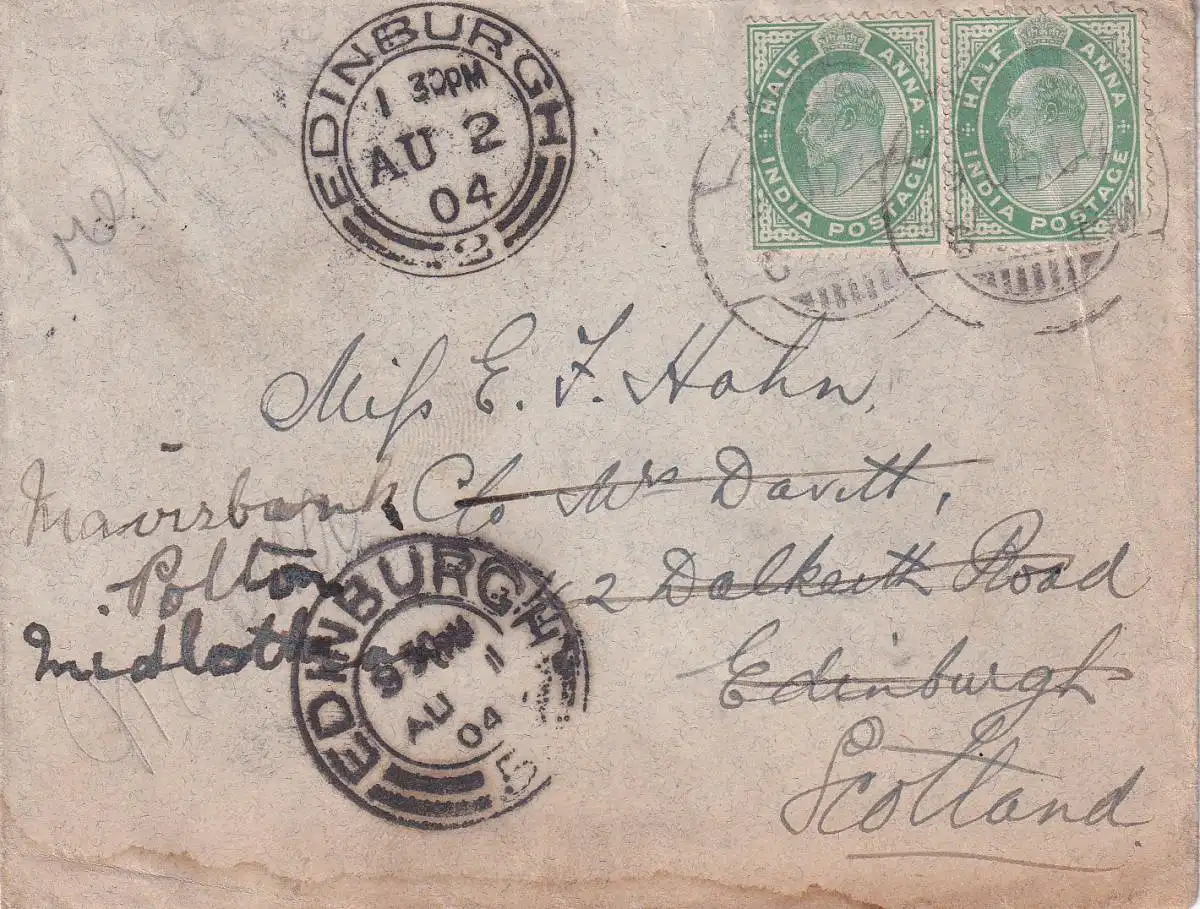 EDINBURGH
1 30PM
AU 2
04
2
HALF ANNA
INDIA POSTAGE
HALF ANNA
INDIA POSTAGE
Miss E. F. Hahn,
C/o Mrs Davitt,
2 Dalkeith Road
Edinburgh
Scotland
Mavisbank
Polton
Midlothian
EDINBURGH
9 30PM
AU 1
04
5